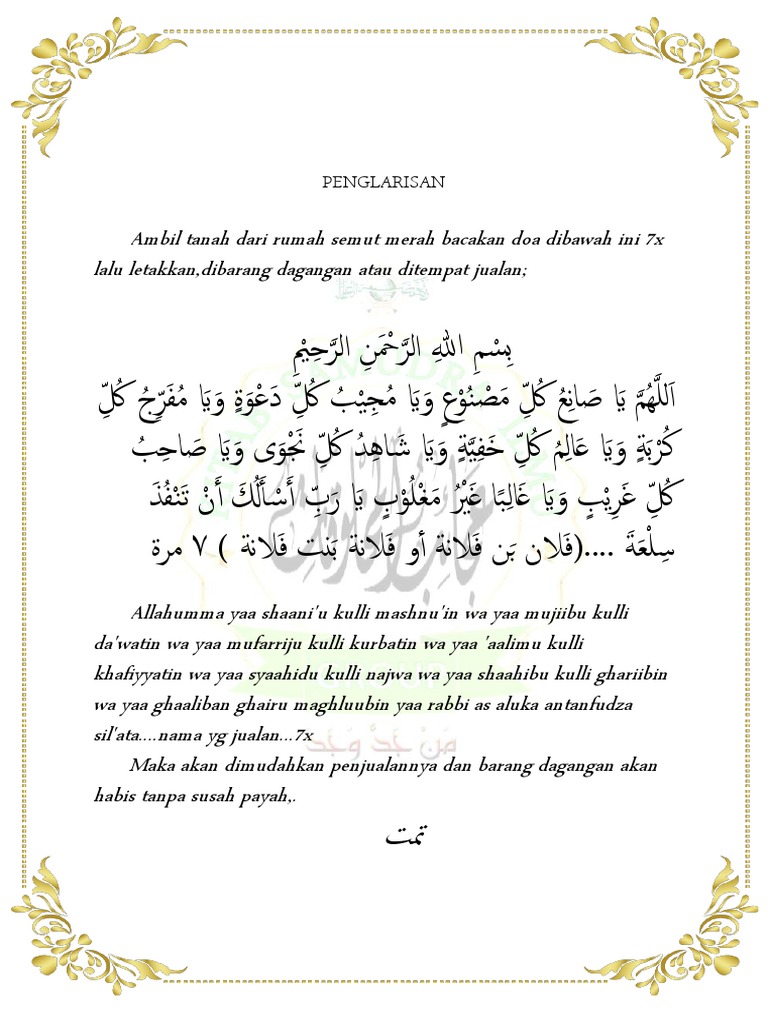 PENGLARISAN
Ambil tanah dari rumah semut merah bacakan doa dibawah ini 7x
lalu letakkan,dibarang dagangan atau ditempat jualan;
بِسْمِ اللهِ الرَّحْمَنِ الرَّحِيْمِ
اَللَّهُمَّ يَا صَانِعُ كُلِّ مَصْنُوْعٍ وَيَا مُجِيْبُ كُلِّ دَعْوَةٍ وَيَا مُفَرِّجُ كُلِّ
كُرْبَةٍ وَيَا عَالِمُ كُلِّ خَفِيَّةٍ وَيَا شَاهِدُ كُلِّ نَجْوَى وَيَا صَاحِبُ
كُلِّ غَرِيْبٍ وَيَا غَالِبًا غَيْرُ مَغْلُوْبٍ يَا رَبِّ أَسْأَلُكَ أَنْ تَنْفُذَ
سِلْعَةَ ....(فَلان بَن فَلانة أو فَلانة بَنت فَلانة ) ٧ مرة
Allahumma yaa shaani'u kulli mashnu'in wa yaa mujiibu kulli
da'watin wa yaa mufarriju kulli kurbatin wa yaa 'aalimu kulli
khafiyyatin wa yaa syaahidu kulli najwa wa yaa shaahibu kulli ghariibin
wa yaa ghaaliban ghairu maghluubin yaa rabbi as aluka antanfudza
sil'ata....nama yg jualan...7x
مَنْ جَدَّ وَجَدَ
Maka akan dimudahkan penjualannya dan barang dagangan akan
habis tanpa susah payah,.
تمت